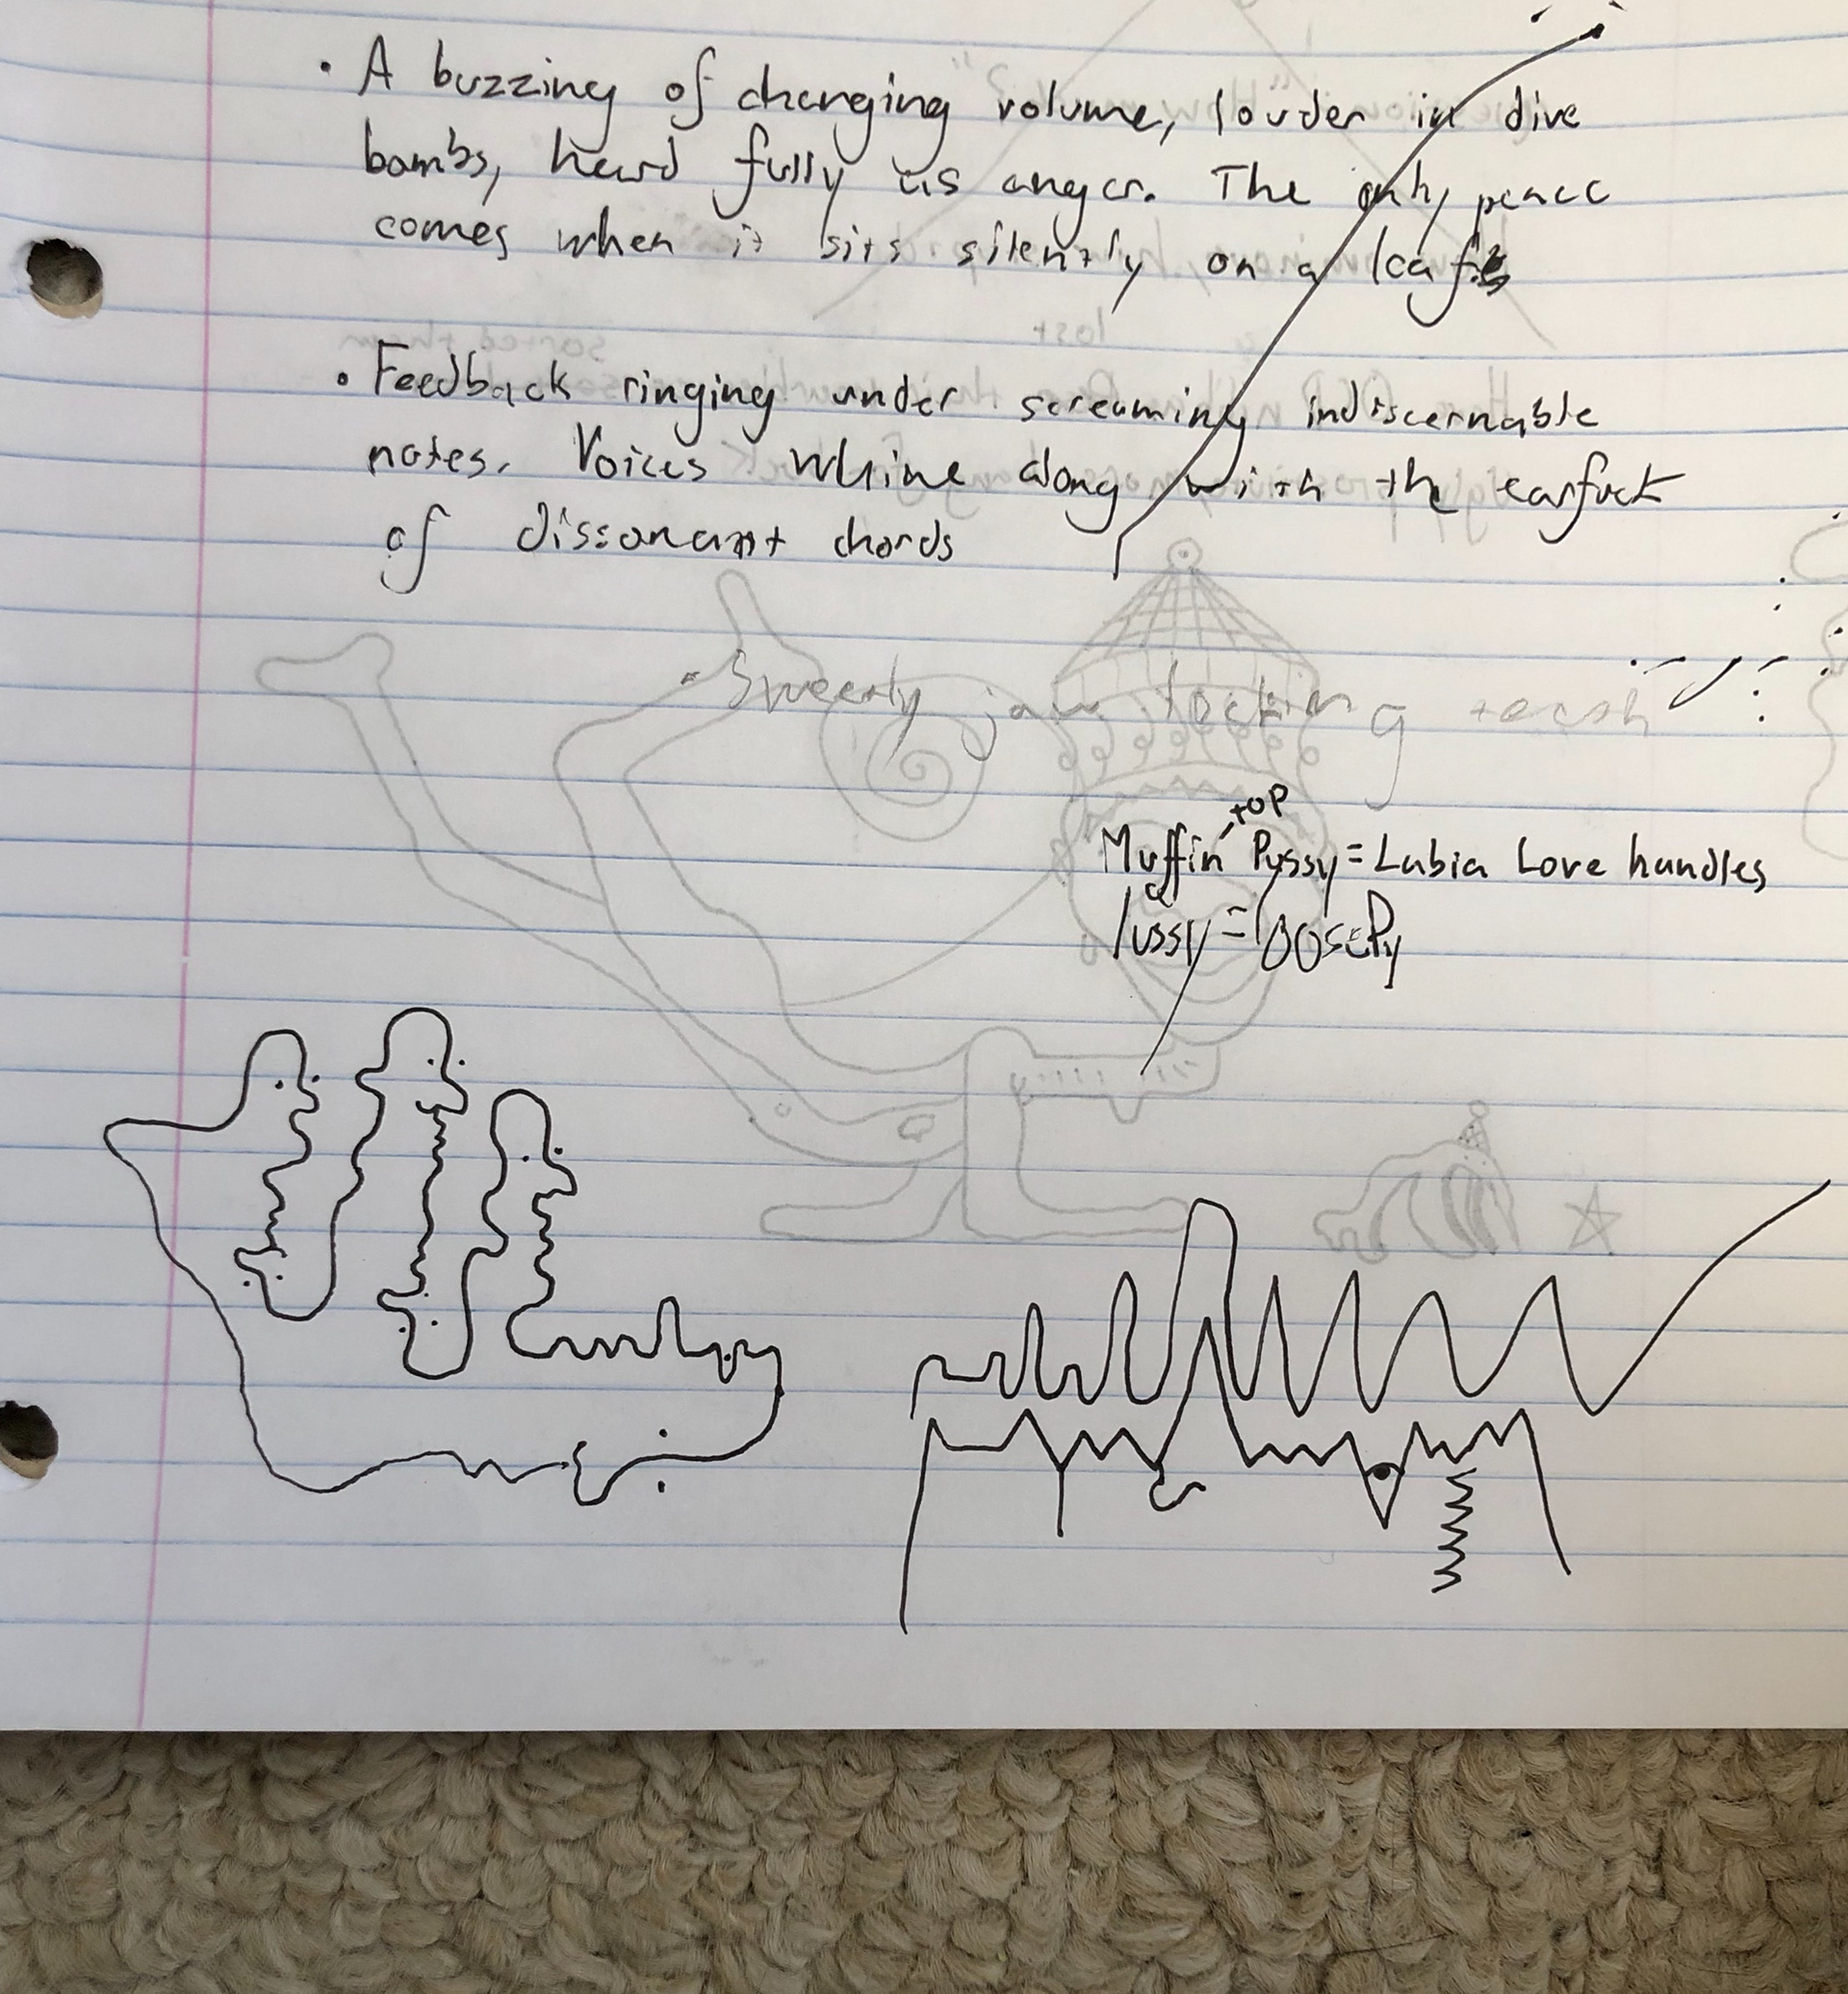 • A buzzing of changing volume, louder in dive
bombs, heard fully as anger. The only peace
comes when it sits silently on a leaf
• Feedback ringing under screaming indiscernable
notes. Voices whine along with the earfuck
of dissonant chords
• Sweetly jaw locking
top
Muffin Pussy = Labia Love handles
Pussy = loosePy